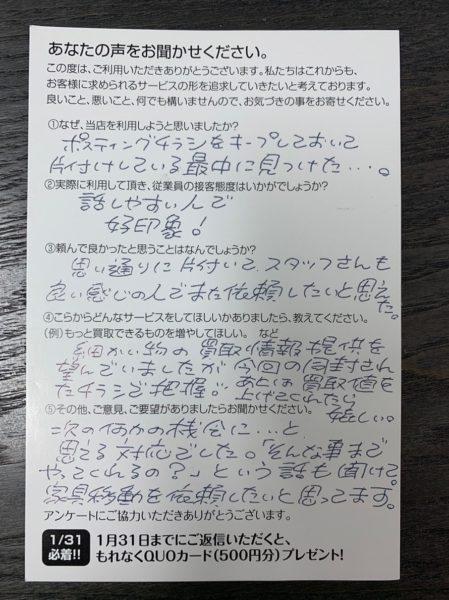 あなたの声をお聞かせください。
この度は、ご利用いただきありがとうございます。私たちはこれからも、
お客様に求められるサービスの形を追求していきたいと考えております。
良いこと、悪いこと、何でも構いませんので、お気づきの事をお寄せください。
①なぜ、当店を利用しようと思いましたか?
ポスティングチラシをキープしておいて
片付けしている最中に見つけた・・・。
②実際に利用して頂き、従業員の接客態度はいかがでしょうか?
話しやすい人で
好印象!
③頼んで良かったと思うことはなんでしょうか?
思い通りに片付いて、スタッフさんも
良い感じの人でまた依頼したいと思えた。
④こらからどんなサービスをしてほしいかありましたら、教えてください。
(例)もっと買取できるものを増やしてほしい。 など
細かい物の買取情報提供を
望んでいましたが今回の同封され
たチラシで把握。あとは買取値を
上げてくれたら
嬉しい。
⑤その他、ご意見、ご要望がありましたらお聞かせください。
次の何かの機会に…と
思える対応でした。「そんな事まで
やってくれるの?」という話も聞けて。
家具移動を依頼したいと思ってます。
アンケートにご協力いただきありがとうございます。
1/31
必着!!
1月31日までにご返信いただくと、
もれなくQUOカード(500円分)プレゼント!